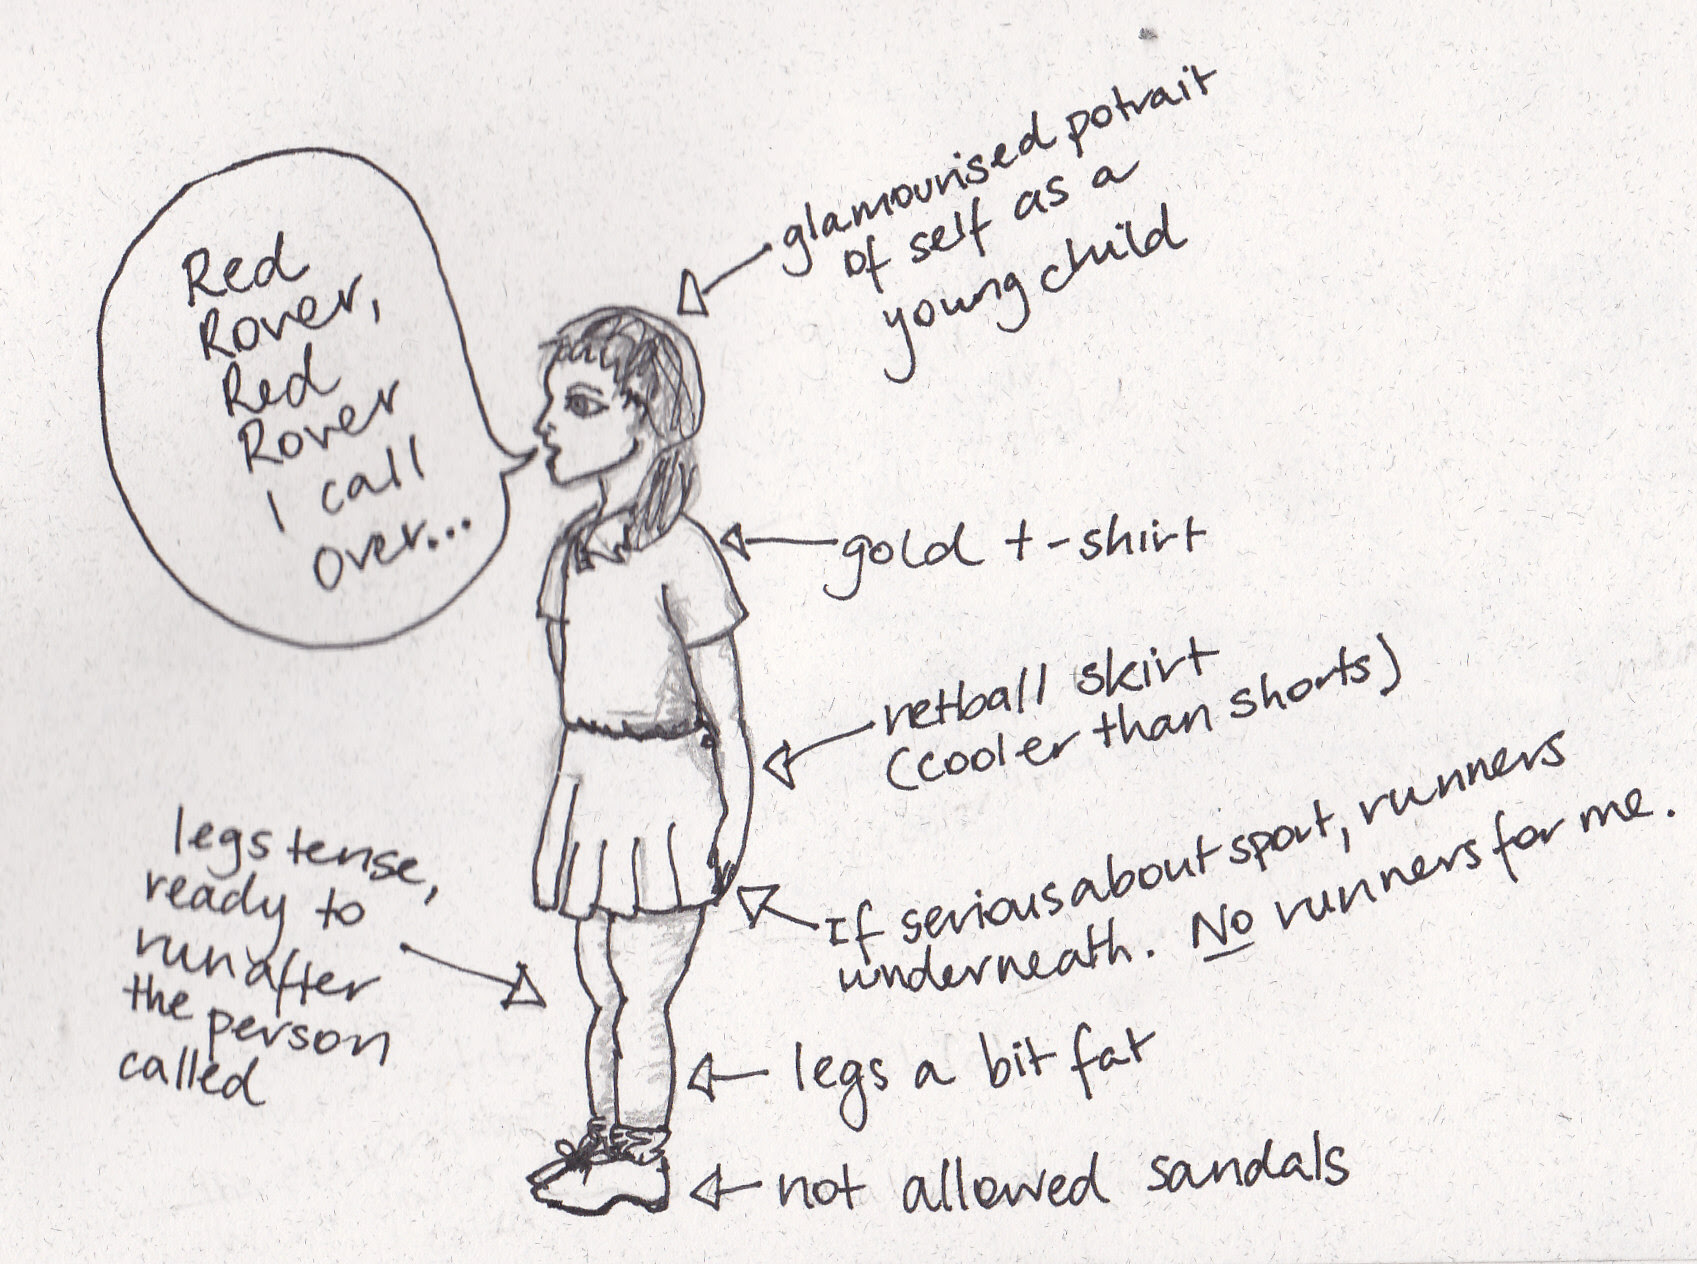 Red
Rover,
Red
Rover
I call
over...
glamourised potrait
of self as a
young child
gold t-shirt
netball skirt
(cooler than shorts)
If serious about sport, runners
underneath. No runners for me.
legs tense,
ready to
run after
the person
called
legs a bit fat
not allowed sandals